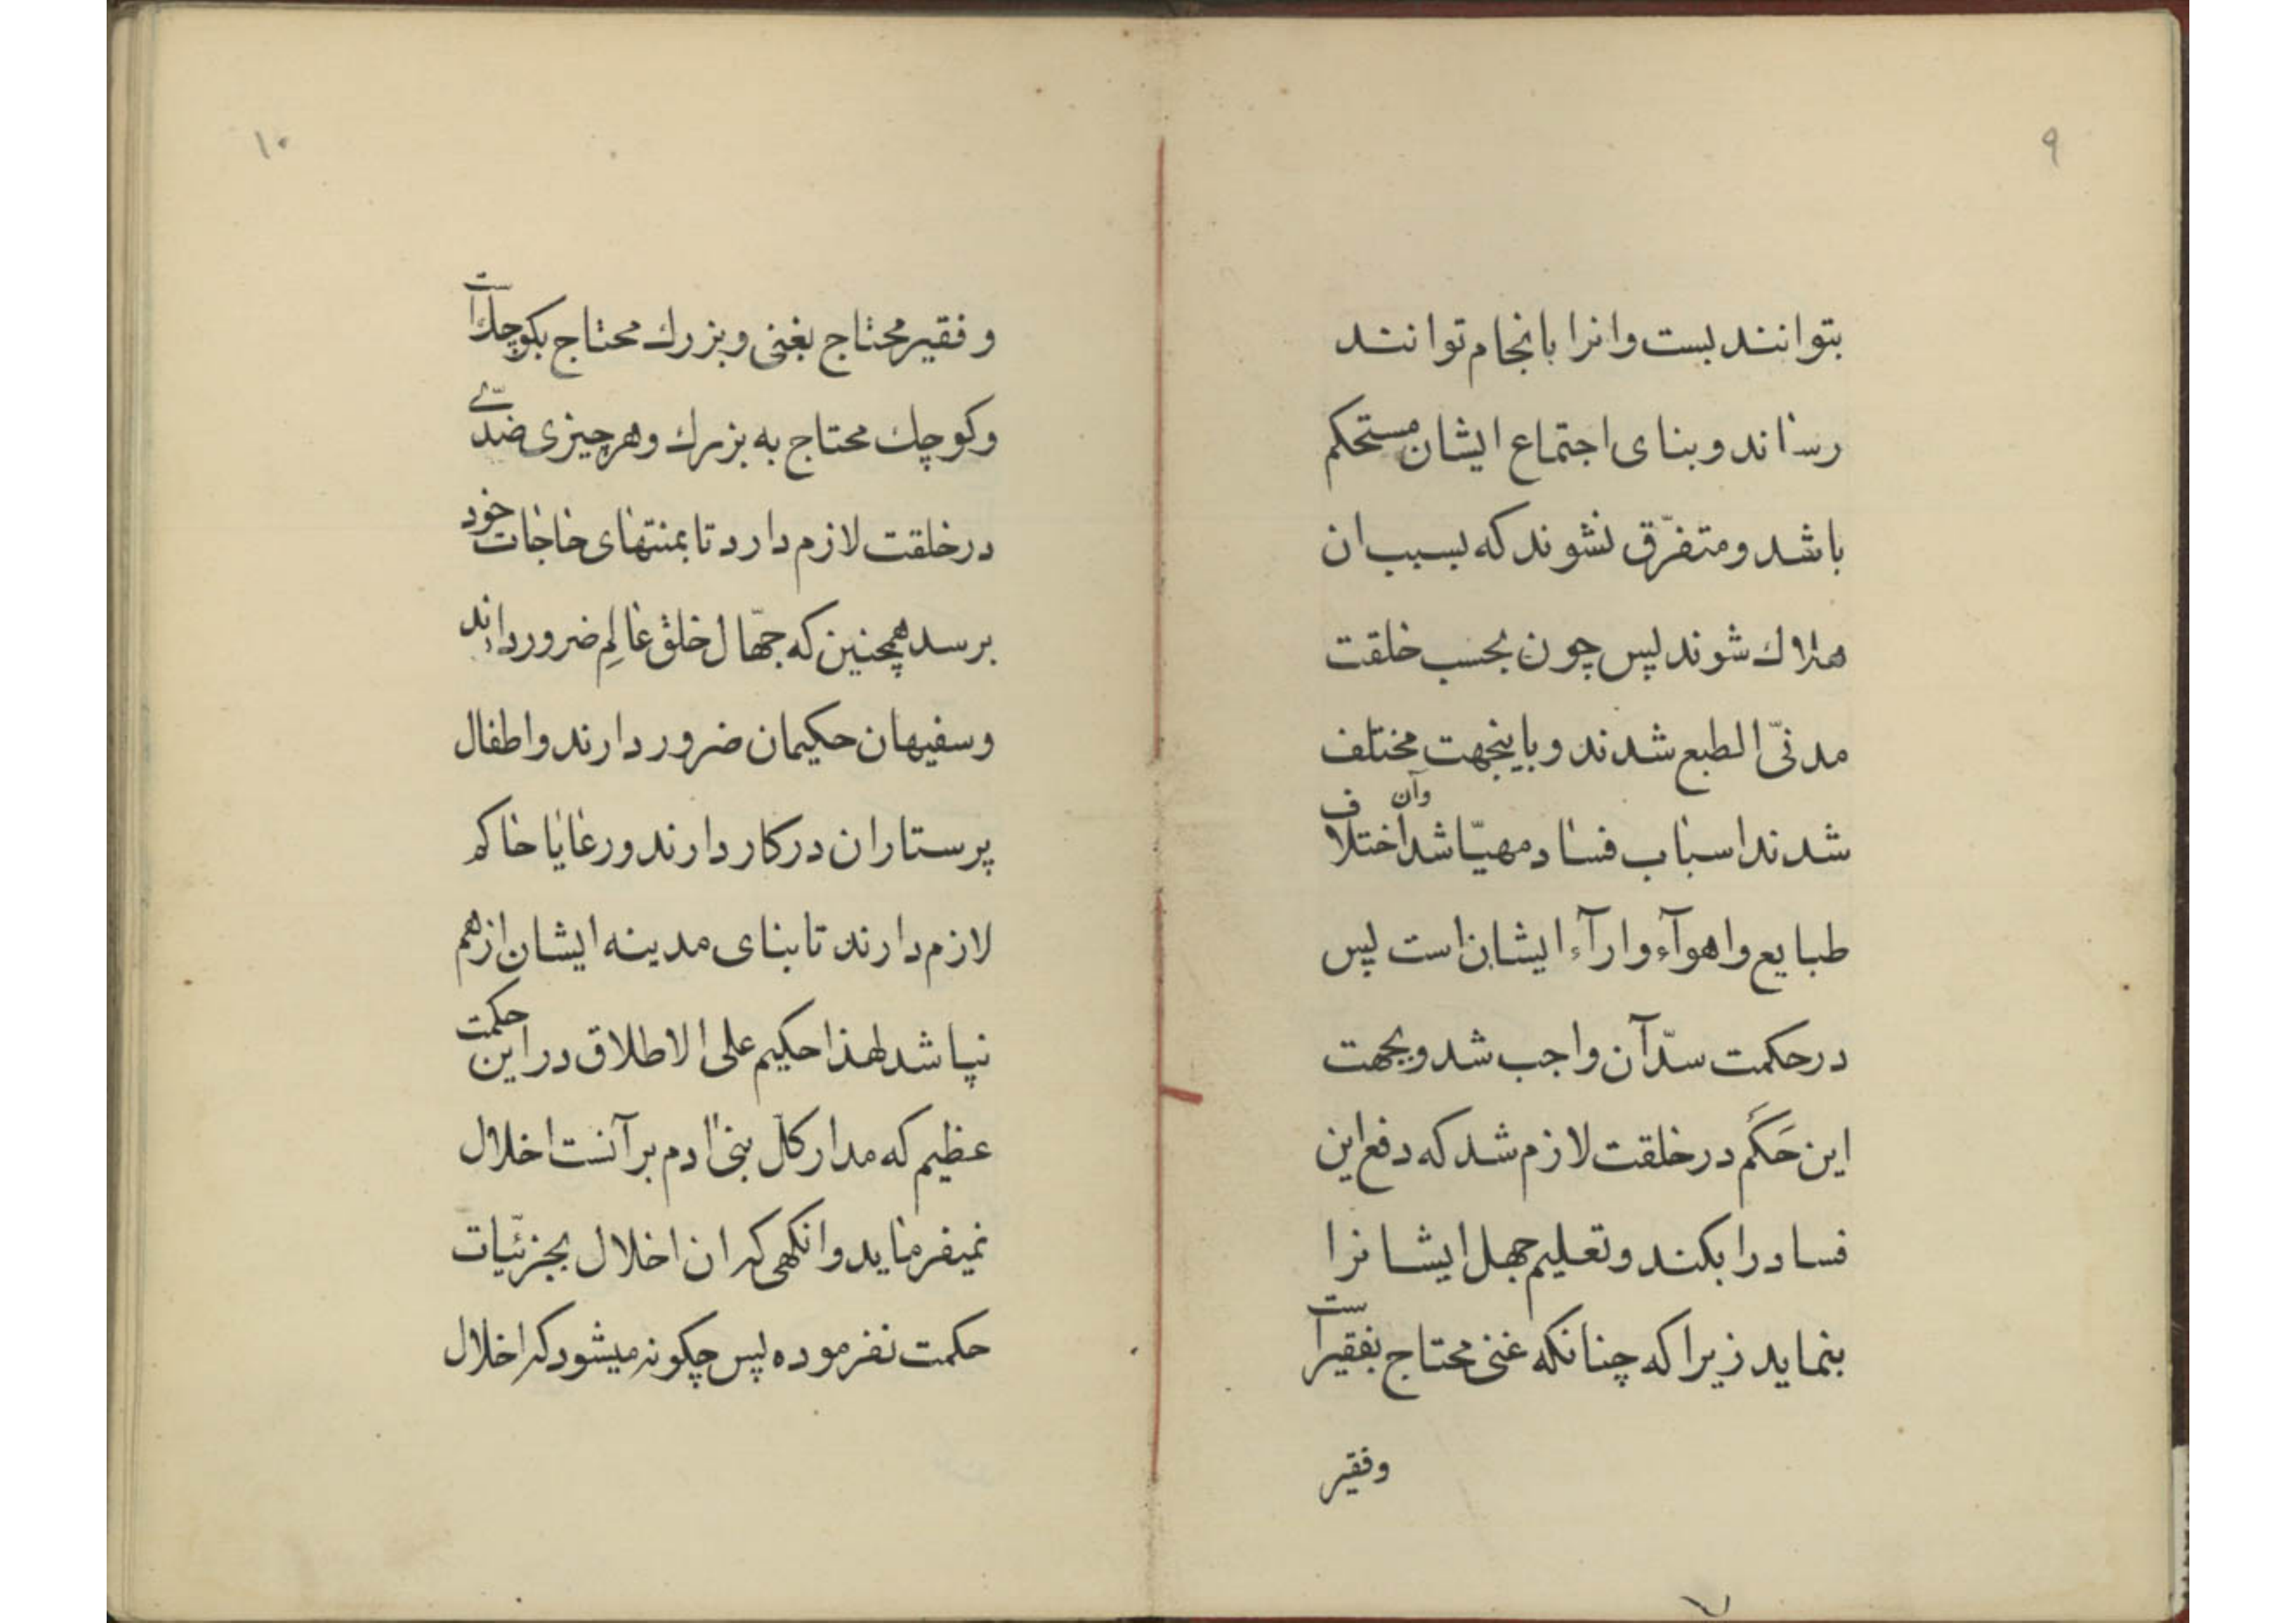 ۹
بتوانند بست وانرا بانجام توانند
رساند و بنای اجتماع ایشان مستحکم
باشد و متفرّق نشوند که بسبب ان
هلاك شوند پس چون بحسب خلقت
مدنیّ الطبع شدند و باینجهت مختلف
شدند اسباب فساد مهیّا شد وآن اختلاف
طبایع و اهوآء و ارآء ایشان است پس
در حکمت سدّ آن واجب شد و بجهت
این حَکَم در خلقت لازم شد که دفع این
فساد را بکند و تعلیم جهل ایشانرا
بنماید زیرا که چنانکه غنی محتاج بفقیر است
وفقیر
۱۰
و فقیر محتاج بغنی و بزرك محتاج بکوچك است
و کوچك محتاج به بزرك و هر چیزی ضدّے
در خلقت لازم دارد تا بمنتهای حاجات خود
برسد همچنین که جهّال خلق عالِم ضرور دارند
و سفیهان حکیمان ضرور دارند و اطفال
پرستاران در کار دارند و رعایا حاکم
لازم دارند تا بنای مدینه ایشان از هم
نپاشد لهذا حکیم علی الاطلاق در این حکمت
عظیم که مدار کلّ بنی ادم بر آنست اخلال
نمیفرماید و انگهی که ان اخلال بجزئیّات
حکمت نفرموده پس چگونه میشود که اخلال